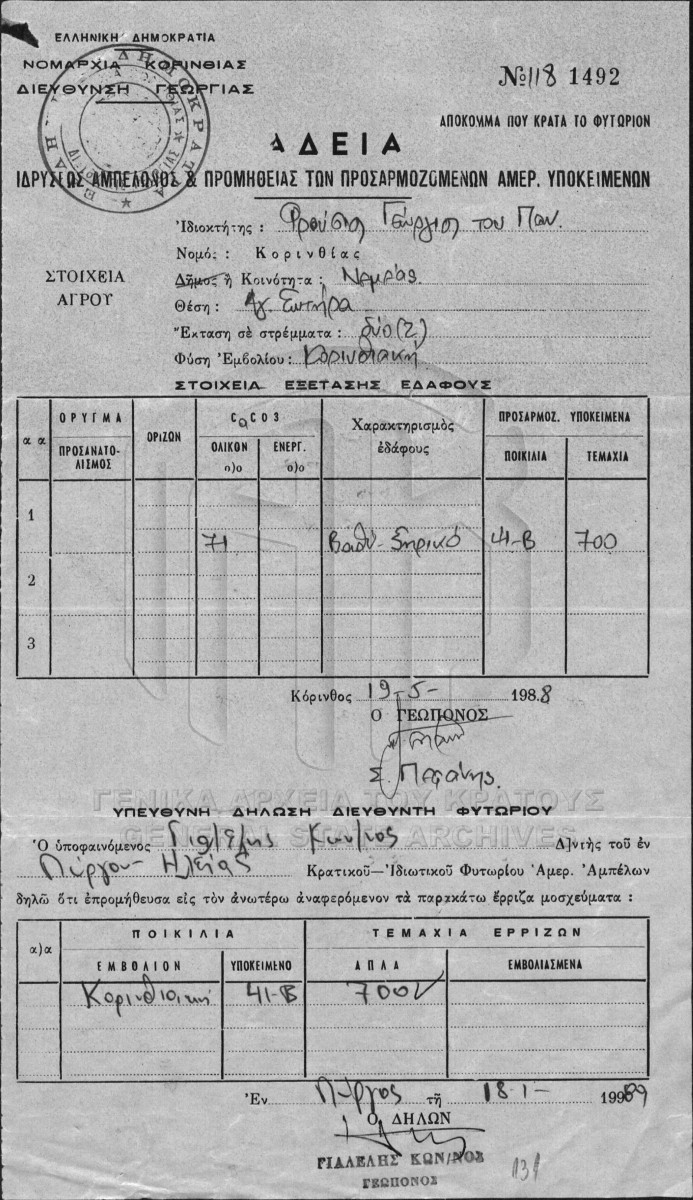 ΕΛΛΗΝΙΚΗ ΔΗΜΟΚΡΑΤΙΑ
ΝΟΜΑΡΧΙΑ ΚΟΡΙΝΘΙΑΣ
ΔΙΕΥΘΥΝΣΗ ΓΕΩΡΓΙΑΣ
№ 118 1492
ΑΠΟΚΟΜΜΑ ΠΟΥ ΚΡΑΤΑ ΤΟ ΦΥΤΩΡΙΟΝ
ΑΔΕΙΑ
ΙΔΡΥΣΕΩΣ ΑΜΠΕΛΩΝΟΣ & ΠΡΟΜΗΘΕΙΑΣ ΤΩΝ ΠΡΟΣΑΡΜΟΖΟΜΕΝΩΝ ΑΜΕΡ. ΥΠΟΚΕΙΜΕΝΩΝ
ΣΤΟΙΧΕΙΑ ΑΓΡΟΥ
Ἰδιοκτήτης : Γεώργιος του Παν.
Νομό : Κορινθίας
Δῆμος ἤ Κοινότητα : Νεμέας
Θέση : Αγ. Σωτήρα
Ἔκταση σὲ στρέμματα : δύο (2)
Φύση Ἐμβολίου : Κορινθιακή
ΣΤΟΙΧΕΙΑ ΕΞΕΤΑΣΗΣ ΕΔΑΦΟΥΣ
α α ΟΡΥΓΜΑ ΠΡΟΣΑΝΑΤΟΛΙΣΜΟΣ ΟΡΙΖΩΝ CaCO3 Χαρακτηρισμὸς ἐδάφους ΠΡΟΣΑΡΜΟΖ. ΥΠΟΚΕΙΜΕΝΑ
ΟΛΙΚΟΝ ο)ο ΕΝΕΡΓ. ο)ο ΠΟΙΚΙΛΙΑ ΤΕΜΑΧΙΑ
1
71 Βαθύ-ξηρικό 41-Β 700
2
3
Κόρινθος 19-5- 1988
Ο ΓΕΩΠΟΝΟΣ
ΓΕΝΙΚΑ ΑΡΧΕΙΑ ΤΟΥ ΚΡΑΤΟΥΣ
GENERAL STATE ARCHIVES
ΥΠΕΥΘΥΝΗ ΔΗΛΩΣΗ ΔΙΕΥΘΥΝΤΗ ΦΥΤΩΡΙΟΥ
Ὁ ὑποφαινόμενος Γιαλελής Κων/νος Δ)ντὴς τοῦ ἐν
Πύργου-Ηλείας Κρατικοῦ—Ιδιωτικοῦ Φυτωρίου Ἀμερ. Ἀμπέλων
δηλῶ ὅτι ἐπρομήθευσα εἰς τὸν ἀνωτέρω ἀναφερόμενον τὰ παρακάτω ἔρριζα μοσχεύματα :
α)α ΠΟΙΚΙΛΙΑ ΤΕΜΑΧΙΑ ΕΡΡΙΖΩΝ
ΕΜΒΟΛΙΟΝ ΥΠΟΚΕΙΜΕΝΟ ΑΠΛΑ ΕΜΒΟΛΙΑΣΜΕΝΑ
Κορινθιακή 41-Β 700
Ἐν Πύργος τῇ 18-1- 1989
Ο ΔΗΛΩΝ
ΓΙΑΛΕΛΗΣ ΚΩΝ/ΝΟΣ
ΓΕΩΠΟΝΟΣ
131